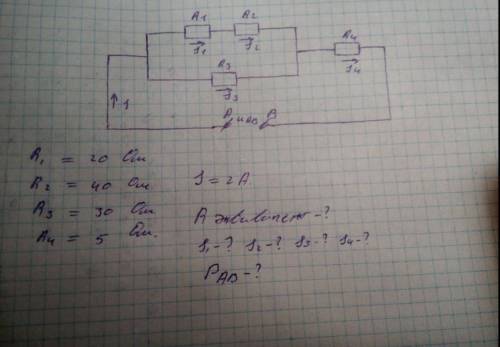 R1 R2
I1 I2
R4
I4
R3
I3
↑ I
A UAB B
R1 = 20 Ом
R2 = 40 Ом
R3 = 30 Ом
R4 = 5 Ом.
I = 2A.
R эквивалент - ?
I1 - ? I2 - ? I3 - ? I4 - ?
PAB - ?